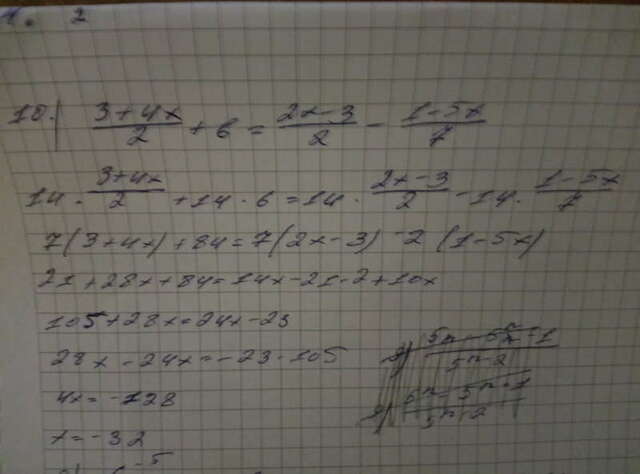 1. 2
10) (3+4x)/2 + 6 = (2x-3)/2 - (1-5x)/7
14 · (3+4x)/2 + 14 · 6 = 14 · (2x-3)/2 - 14 · (1-5x)/7
7(3+4x)+84=7(2x-3)-2(1-5x)
21+28x+84=14x-21-2+10x
105+28x=24x-23
28x-24x=-23-105
4x=-128
x=-32